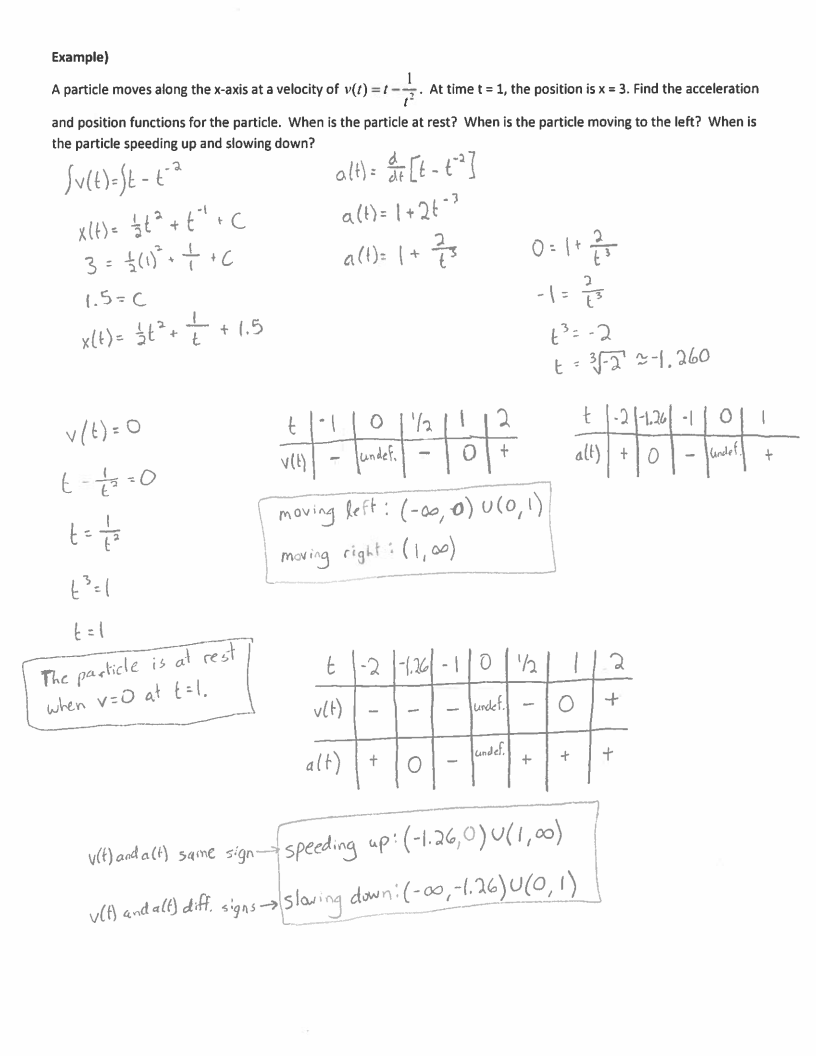 Example)
A particle moves along the x-axis at a velocity of v(t) = t − 1/t². At time t = 1, the position is x = 3. Find the acceleration
and position functions for the particle. When is the particle at rest? When is the particle moving to the left? When is
the particle speeding up and slowing down?
∫v(t)=∫t - t⁻²
x(t)= ½t² + t⁻¹ + C
3 = ½(1)² + 1/1 + C
1.5 = C
x(t)= ½t² + 1/t + 1.5
a(t)= d/dt [t - t⁻²]
a(t)= 1+2t⁻³
a(t)= 1 + 2/t³
0 = 1 + 2/t³
-1 = 2/t³
t³ = -2
t = ³√-2 ≈ -1.260
v(t) = 0
t - 1/t² = 0
t = 1/t²
t³ = 1
t = 1
The particle is at rest
when v=0 at t=1.
t | -1 | 0 | 1/2 | 1 | 2
v(t) | - | undef. | - | 0 | +
moving left : (-∞, 0) ∪ (0, 1)
moving right : (1, ∞)
t | -2 | -1.26 | -1 | 0 | 1
a(t) | + | 0 | - | undef. | +
t | -2 | -1.26 | -1 | 0 | 1/2 | 1 | 2
v(t) | - | - | - | undef. | - | 0 | +
a(t) | + | 0 | - | undef. | + | + | +
v(t) and a(t) same sign → speeding up: (-1.26, 0) ∪ (1, ∞)
v(t) and a(t) diff. signs → slowing down: (-∞, -1.26) ∪ (0, 1)